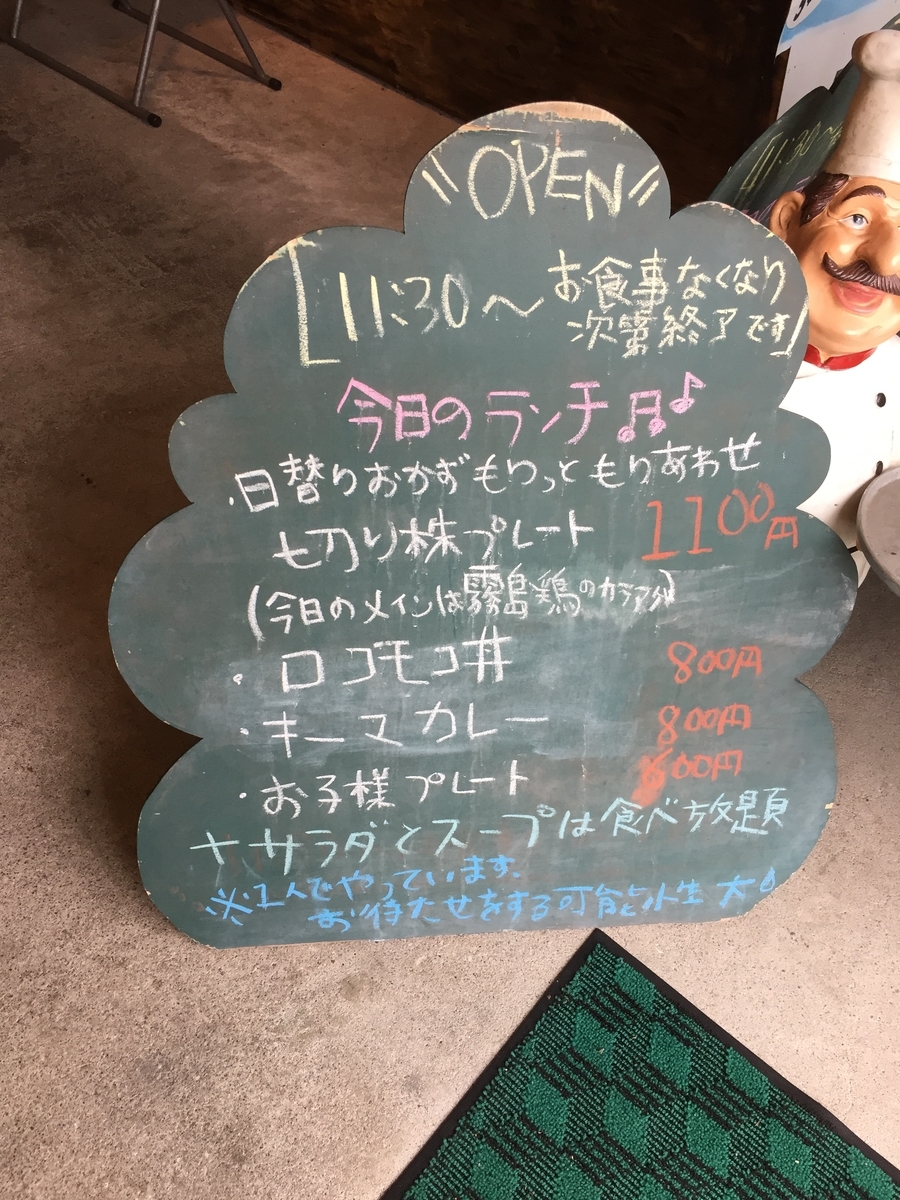 "OPEN"
[11:30～お食事なくなり
次第終了です]
今日のランチ♫♪
・日替りおかずもりっともりあわせ
切り株プレート 1100円
(今日のメインは霧島鶏のカラアゲ)
・ロコモコ丼 800円
・キーマカレー 800円
・お子様プレート 600円
+サラダとスープは食べ放題
※1人でやっています。
お待たせをする可能性大!
11:30～